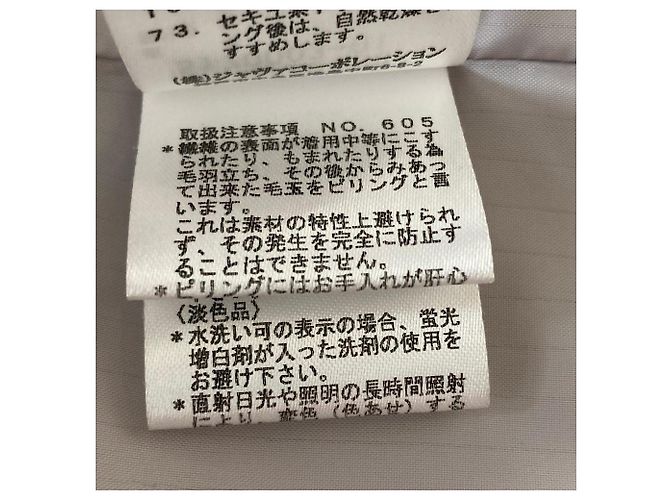 73.
ング後は、自然乾燥を
すすめします。
(株)ジャヴァコーポレーション
取扱注意事項 NO.605
*繊維の表面が着用中等にこす
られたり、もまれたりする為
毛羽立ち、その後からみあっ
て出来た毛玉をピリングと言
います。
これは素材の特性上避けられ
ず、その発生を完全に防止す
ることはできません。
*ピリングにはお手入れが肝心
〈淡色品〉
*水洗い可の表示の場合、蛍光
増白剤が入った洗剤の使用を
お避け下さい。
*直射日光や照明の長時間照射
により、変色(色あせ)する